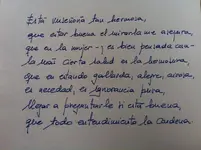 Está vuseñoría tan hermosa,
que estar buena el mirarla me asegura,
que en la mujer y es bien pensada cosa
la más cierta salud es la hermosura,
que en estando gallarda, alegre, airosa,
es necedad, es ignorancia pura,
llegar a preguntarle si está buena,
que todo entendimiento la condena.